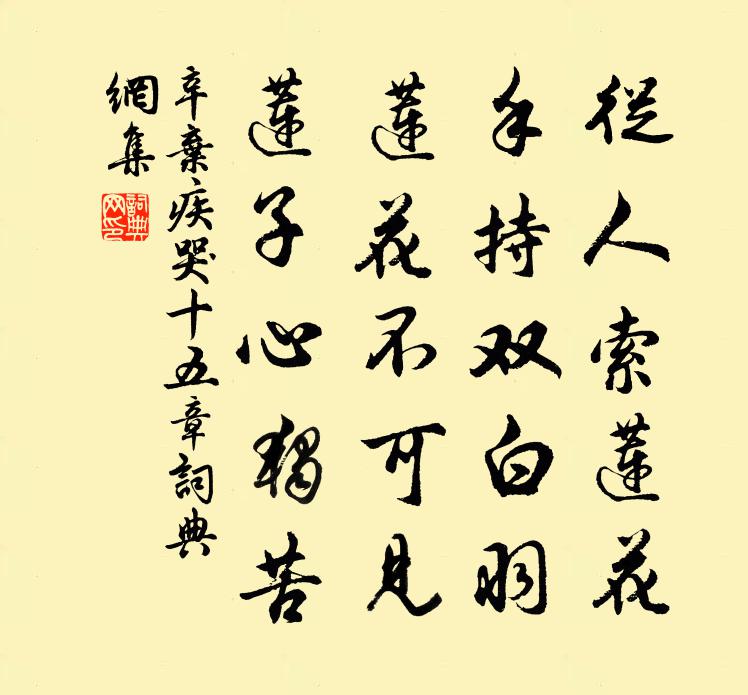 從人索蓮花
手持双白羽
蓮花不可見
蓮子心獨苦
辛棄疾哭十五章詞典
網集
詞典
网印